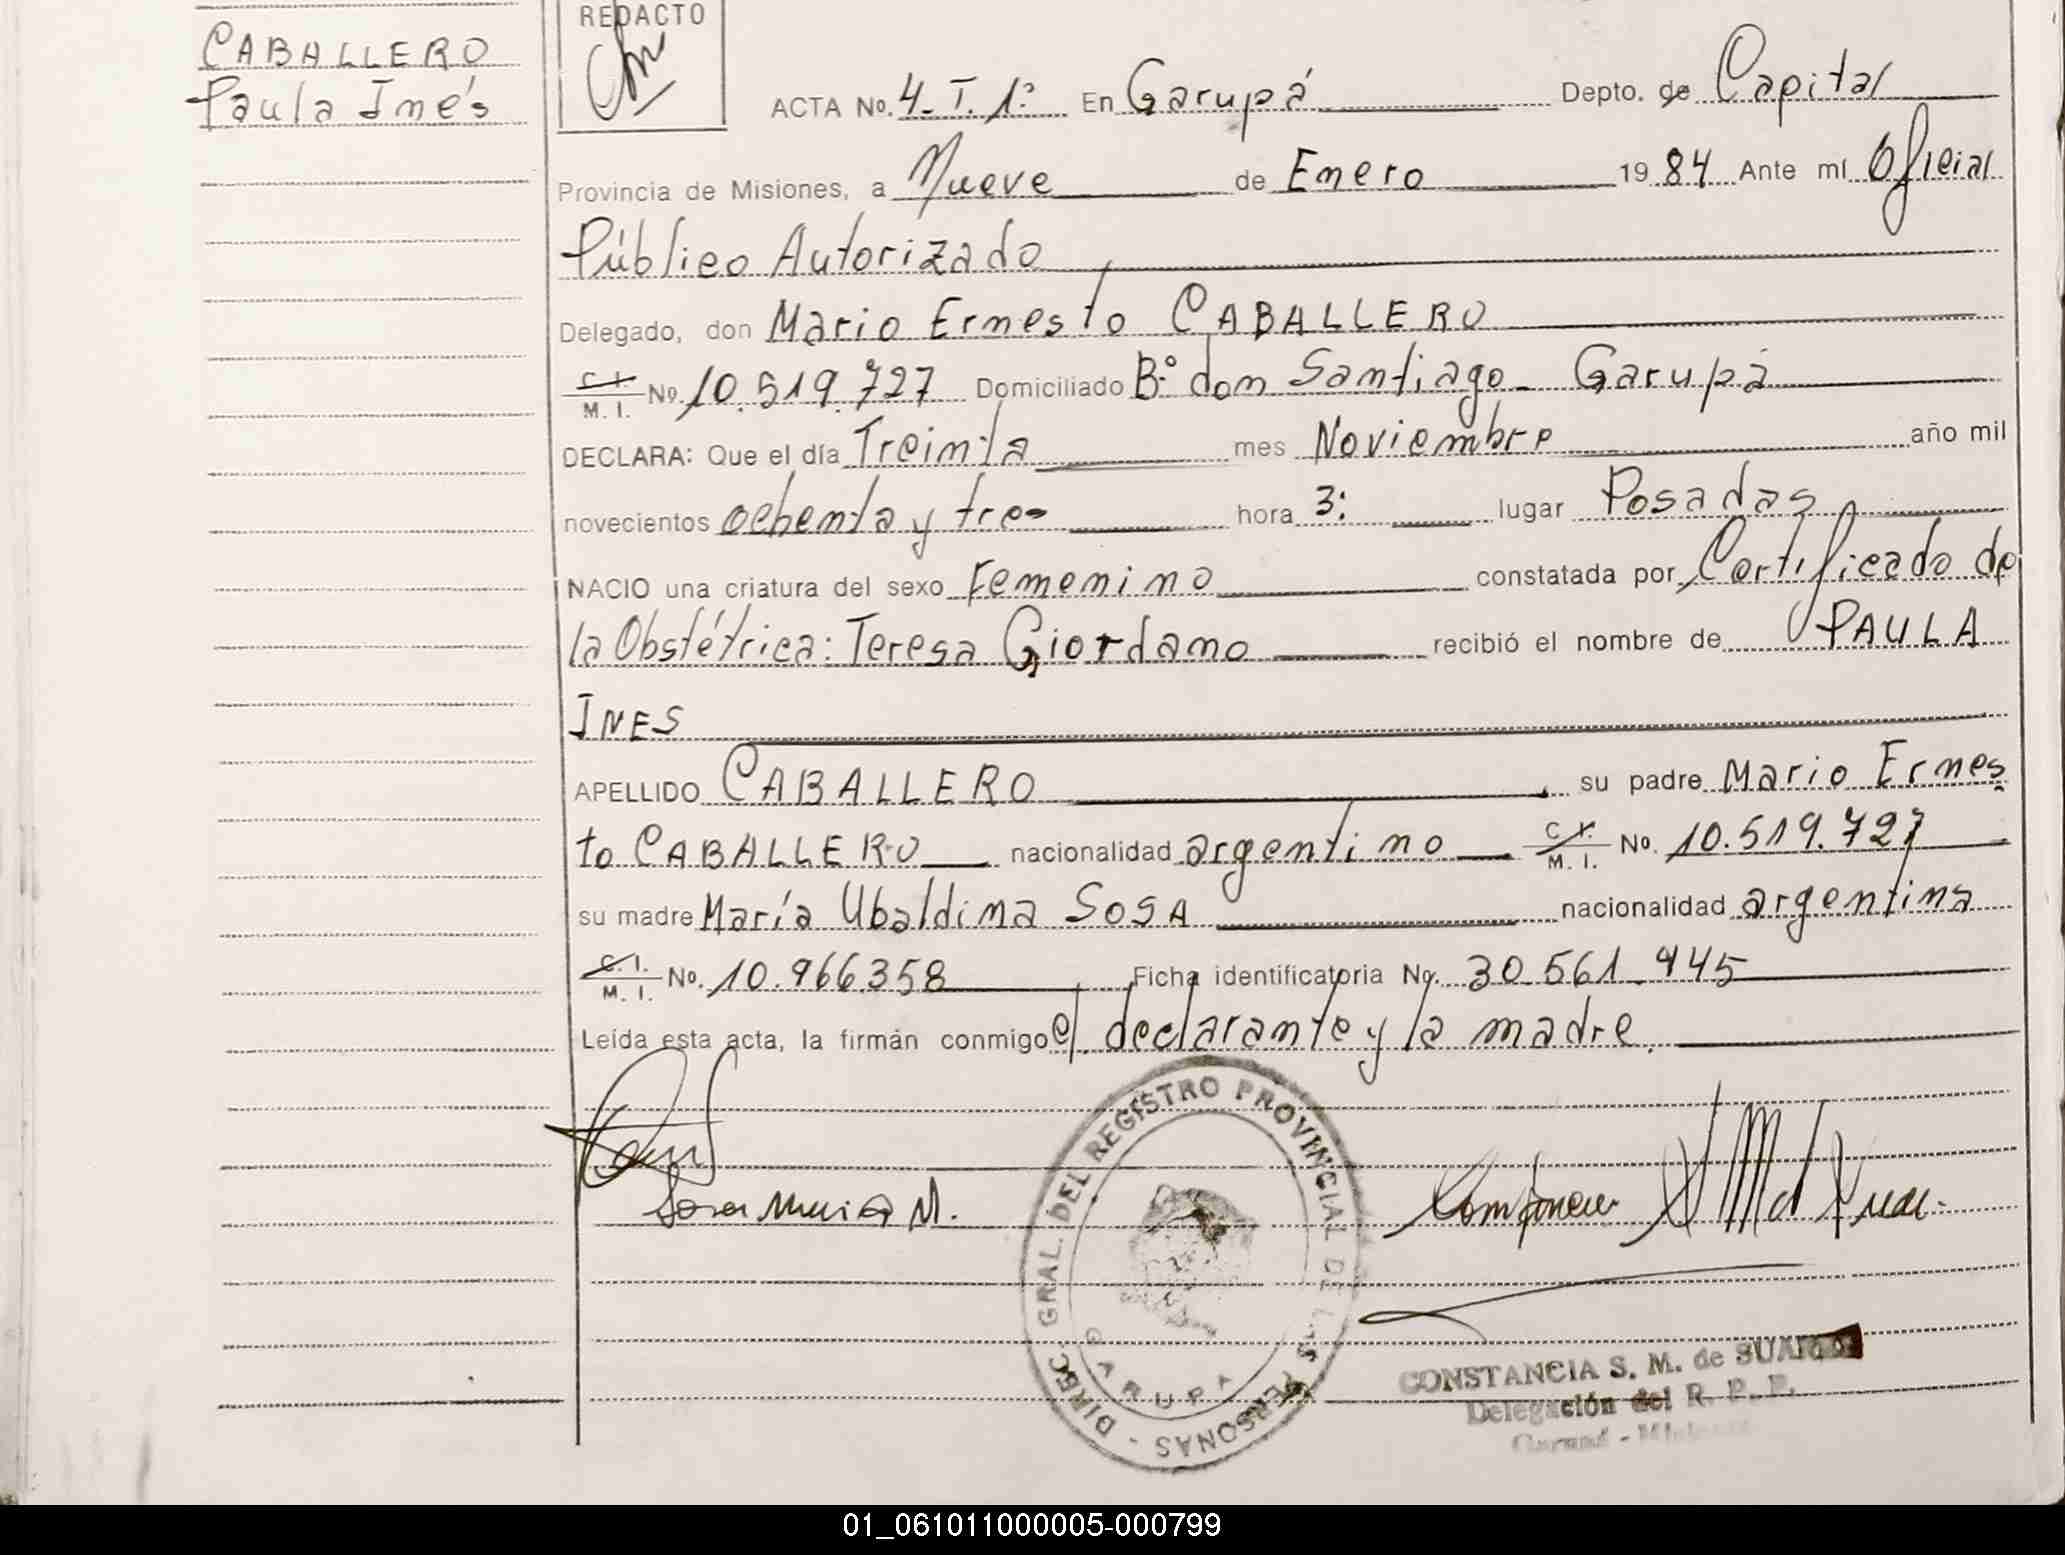 CABALLERO
Paula Inés
REDACTO
ACTA No. 4-T. 1º En Garupá Depto. de Capital
Provincia de Misiones, a Nueve de Enero 1984 Ante mí Oficial
Público Autorizado
Delegado, don Mario Ernesto CABALLERO
C. I. / M. I. No. 10.519.727 Domiciliado Bº don Santiago - Garupá
DECLARA: Que el día Treinta mes Noviembre año mil
novecientos ochenta y tres hora 3: lugar Posadas
NACIO una criatura del sexo Femenino constatada por Certificado de
la Obstétrica: Teresa Giordano recibió el nombre de PAULA
INES
APELLIDO CABALLERO su padre Mario Ernes
to CABALLERO nacionalidad argentino C. I. / M. I. No. 10.519.727
su madre María Ubaldina SOSA nacionalidad argentina
C. I. / M. I. No. 10.966.358 Ficha identificatoria No. 30.561.445
Leída esta acta, la firmán conmigo el declarante y la madre.
Sosa Maria U.
DIREC. GRAL. DEL REGISTRO PROVINCIAL DE LAS PERSONAS -
GARUPA
CONSTANCIA S. M. de SUAREZ
Delegación del R. P. P.
Garupá - Misiones
01_061011000005-000799